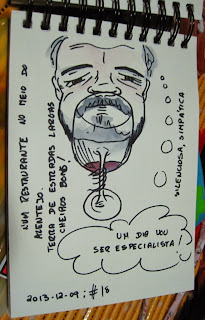 NUM RESTAURANTE NO MEIO DO
ALENTEJO.
TERRA DE ESTRADAS LARGAS
CHEIROS BONS!
SILENCIOSA, SIMPÁTICA
UM DIA VOU
SER ESPECIALISTA!
2013-12-09; #18